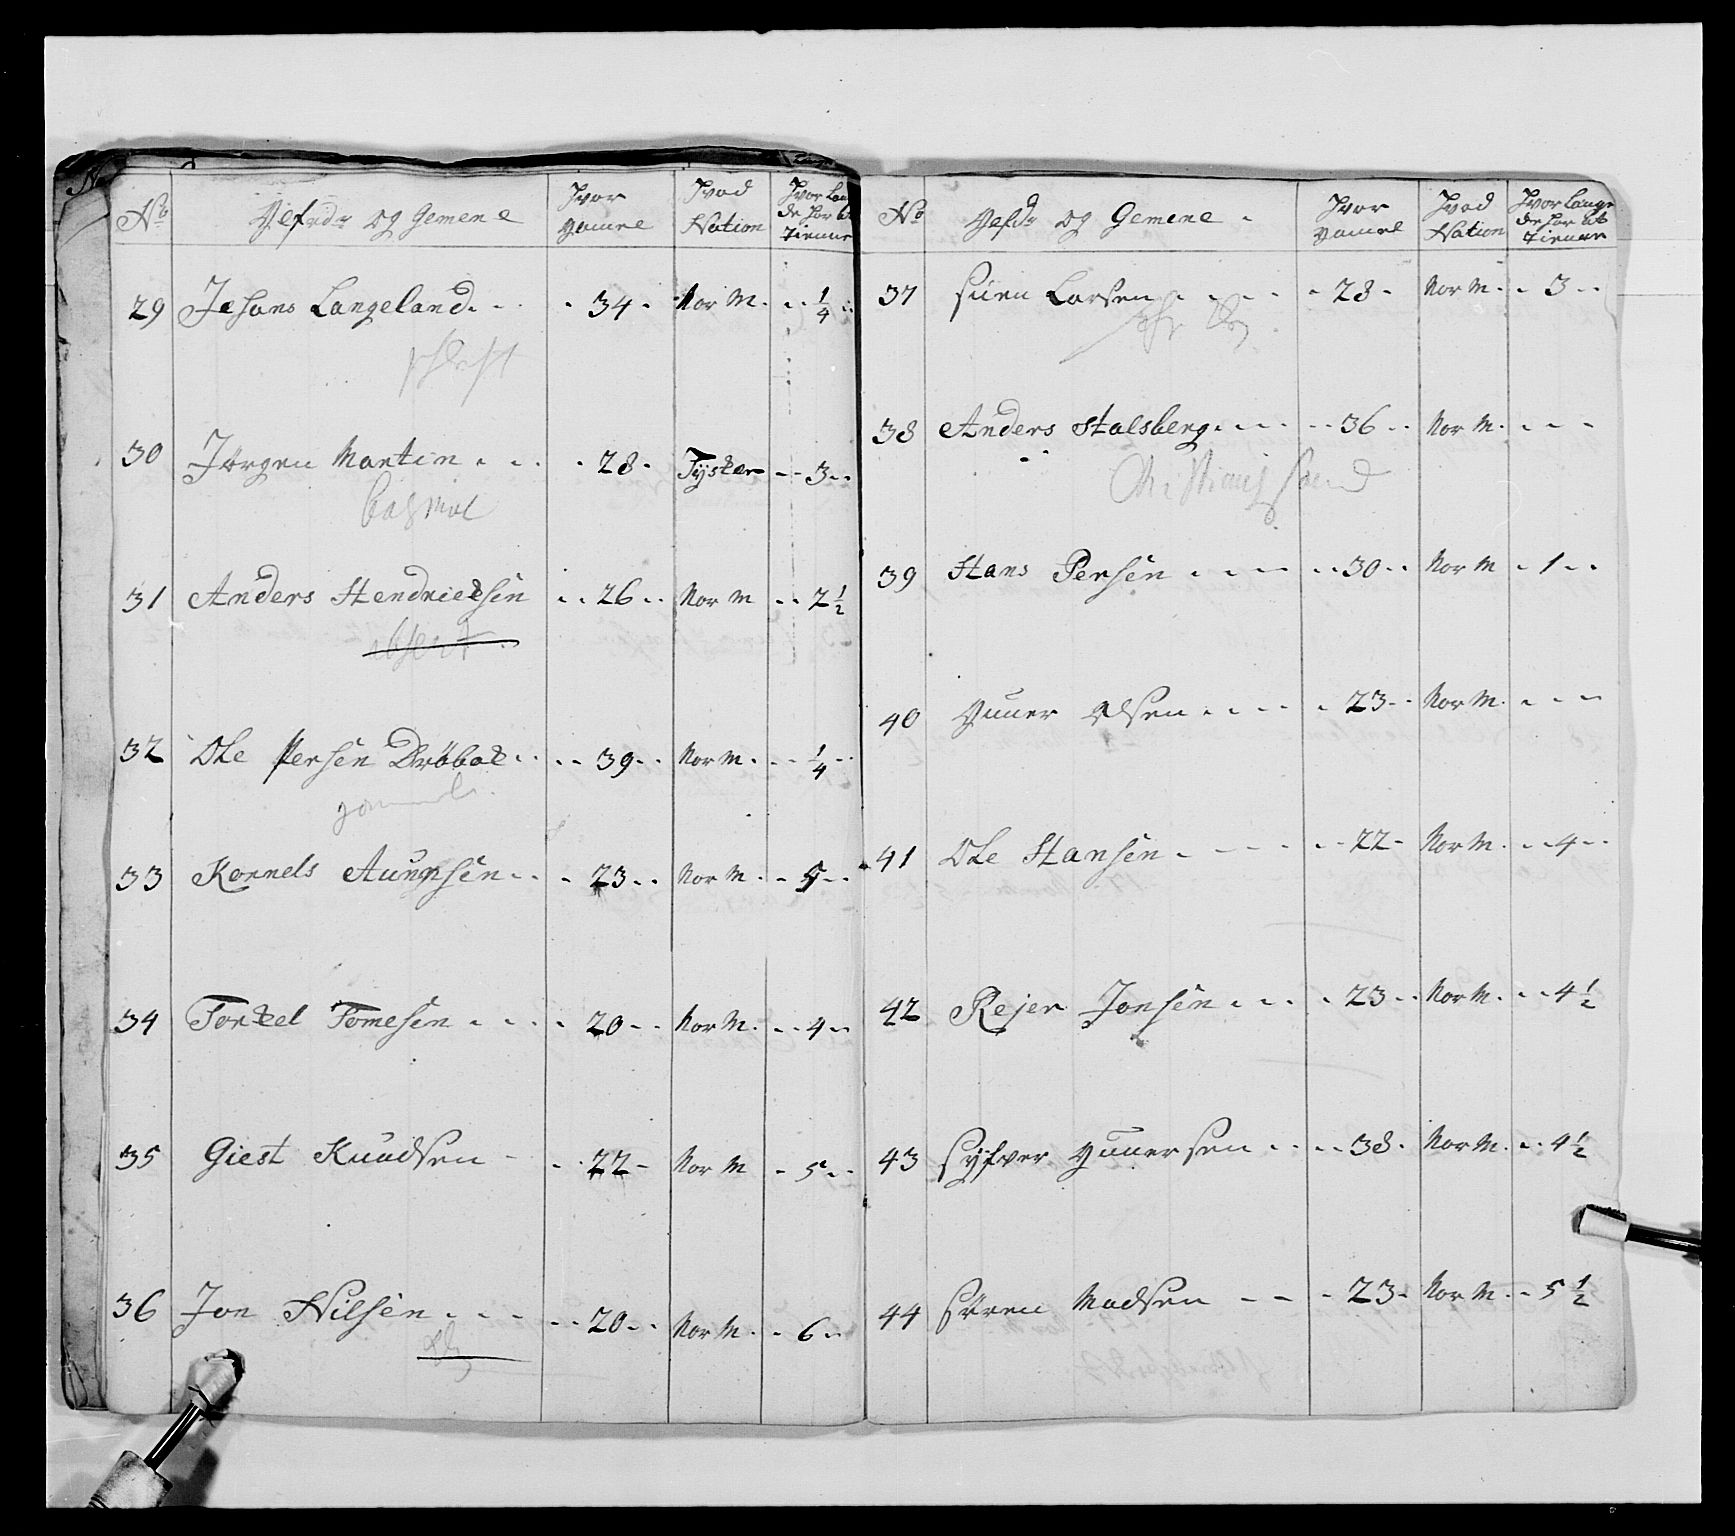 No Gefrdr og Gemene Hvor gamel Hvad Nation Hvor Lan de har tienne
29 Johans Langeland 34 Nor M. 1/4
30 Jørgen Martin 28 Tysker 3
31 Anders Hendricksen 26 Nor M 2 1/2
absent
32 Ole Persen Drøbak 39 Nor M. 1/4
gammel
33 Kornels Aunnsen 23 Nor M. 5
34 Torkel Tomesen 20 Nor M. 4
35 Giest Knudsen 22 Nor M 5
36 Jon Nilsen 20 Nor M. 6
No Gefdr og Gemene Hvor gamel Hvad Nation Hvor Lange de har tienne
37 Suen Larsen 28 Nor M. 3
38 Anders Halsberg 36 Nor M.
Christiansand
39 Hans Persen 30 Nor M 1
40 Guner Olsen 23 Nor M.
41 Ole Hansen 22 Nor M. 4
42 Rejer Jonsen 23 Nor M. 4 1/2
43 Syfver Gunersen 38 Nor M. 4 1/2
44 Søren Madsen 23 Nor M. 5 1/2